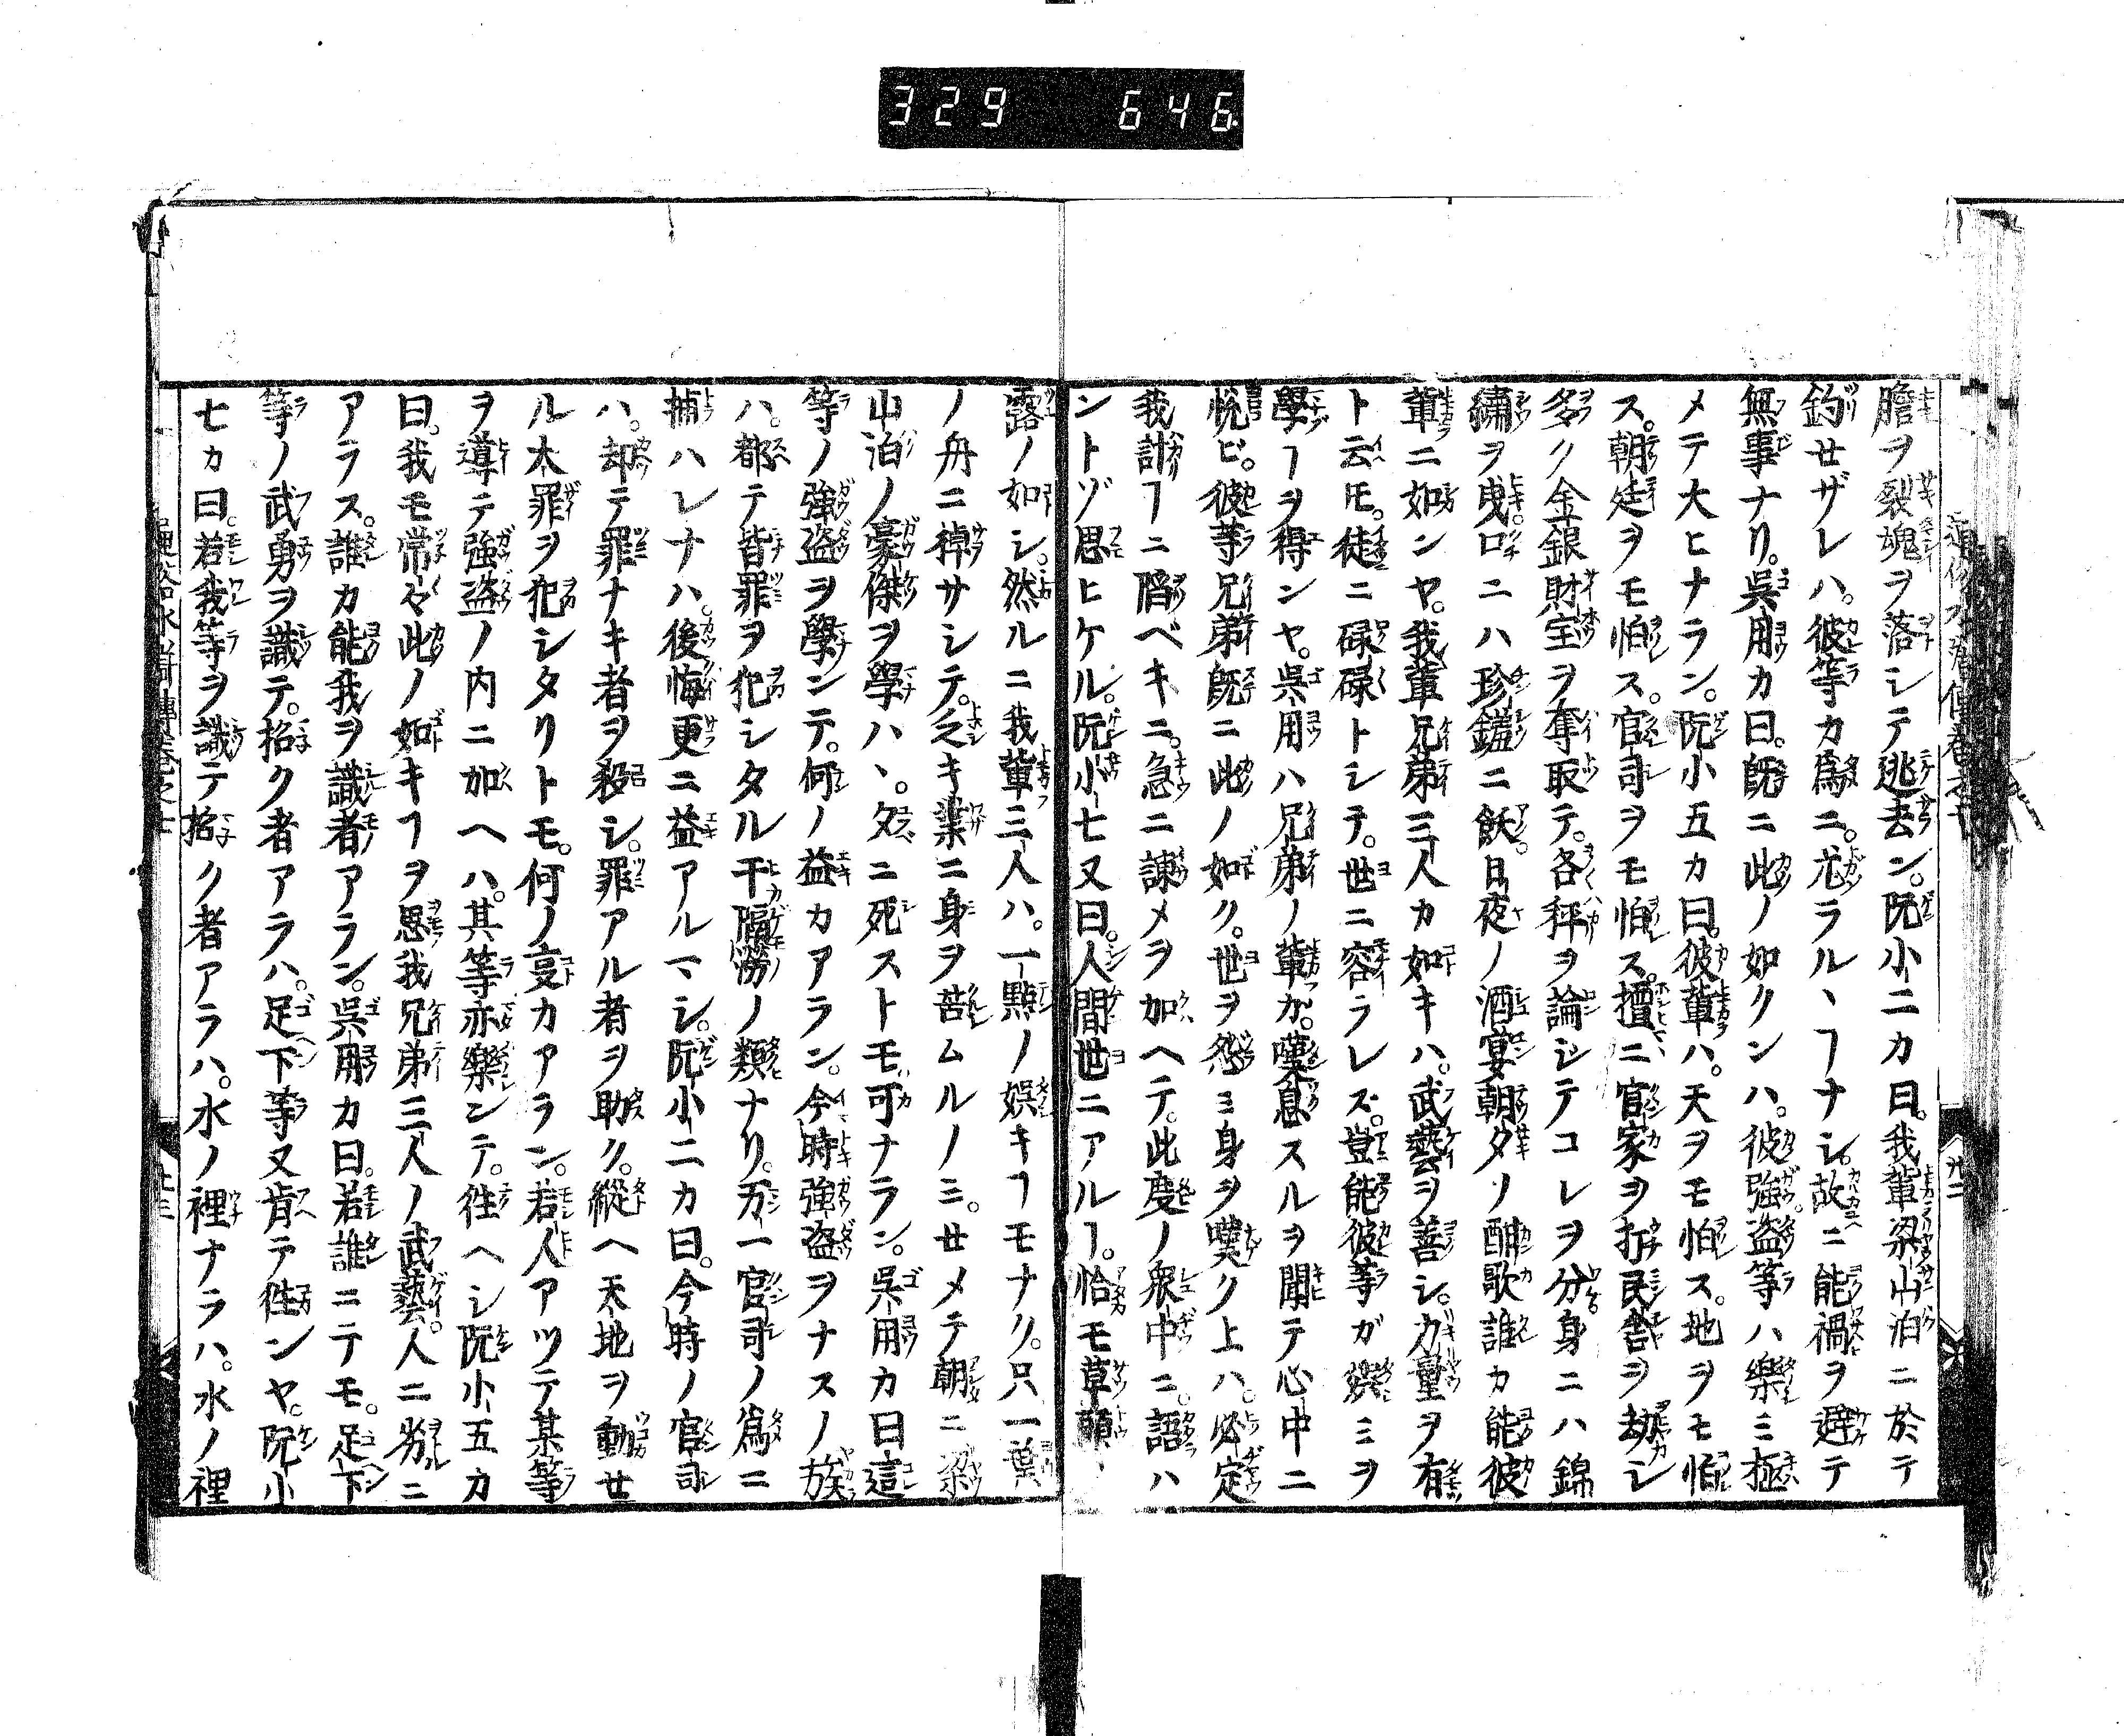 329 646
膽ヲ裂魂ヲ落シテ逃去ン。阮小二カ曰。我輩梁山泊ニ於テ
釣セザレハ。彼等カ為ニ。尤ラル丶ヿナシ。故ニ能禍ヲ避テ
無事ナリ。呉用カ曰。既ニ此ノ如クンハ。彼強盗等ハ樂ミ極
メテ大ヒナラン。阮小五カ曰。彼輩ハ。天ヲモ怕ス。地ヲモ怕
ス。朝廷ヲモ怕ス。官司ヲモ怕ス。擅ニ官家ヲ打民舎ヲ劫シ
多ク金銀財宝ヲ奪取テ。各秤ヲ論シテコレヲ分身ニハ錦
繍ヲ曳口ニハ珍饈ニ飫。日夜ノ酒宴朝夕ノ酣歌誰カ能彼
輩ニ如ンヤ。我輩兄弟三人カ如キハ。武藝ヲ善シ。力量ヲ有
ト云モ。徒ニ碌碌トシテ。世ニ容ラレズ。豈能彼等ガ娯ミヲ
學ヿヲ得ンヤ。呉用ハ兄弟ノ輩カ。嘆息スルヲ聞テ心中ニ
悦ビ。彼等兄弟既ニ此ノ如ク。世ヲ怨ミ身ヲ嘆ク上ハ。必定
我計ヿニ陷ベキニ。急ニ諫メヲ加ヘテ。此度ノ衆中ニ。語ハ
ントゾ思ヒケル。阮小七又曰。人間世ニアルヿ。恰モ草頭
露ノ如シ。然ルニ我輩三人ハ。一點ノ娯キヿモナク。只一葉
ノ舟ニ棹サシテ。乏キ業ニ身ヲ苦ムルノミ。セメテ朝ニ梁
山泊ノ豪傑ヲ學ハ丶。夕ニ死ストモ可ナラン。呉用カ曰這
等ノ強盗ヲ學ンテ。何ノ益カアラン。今時強盗ヲナスノ族
ハ。都テ皆罪ヲ犯シタル干隔澇ノ類ナリ。万一官司ノ為ニ
捕ハレナハ。後悔更ニ益アルマシ。阮小二カ曰。今時ノ官司
ハ。却テ罪ナキ者ヲ殺シ。罪アル者ヲ助ク。縦ヘ天地ヲ動セ
ル大罪ヲ犯シタリトモ。何ノ事カアラン。若人アツテ某等
ヲ導テ強盗ノ内ニ加ヘハ。其等亦樂ンテ。徃ヘシ阮小五カ
曰。我モ常々此ノ如キヿヲ思我兄弟三人ノ武藝。人ニ劣ニ
アラス。誰カ能我ヲ識者アラン。呉用カ曰。若誰ニテモ。足下
等ノ武勇ヲ識テ。招ク者アラハ。足下等又肯テ徃ンヤ。阮小
七カ曰。若我等ヲ識テ招ク者アラハ。水ノ裡ナラハ。水ノ裡